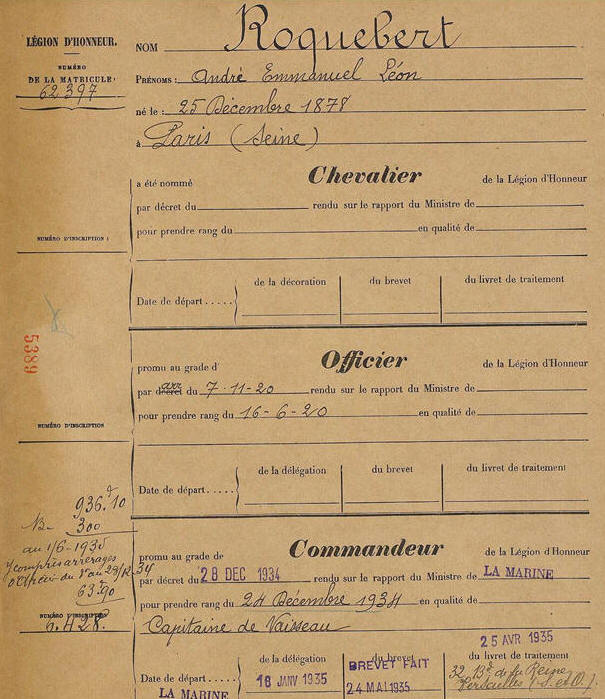 LÉGION D'HONNEUR.
NUMÉRO
DE LA MATRICULE:
62.397
NOM Roquebert
PRÉNOMS: André Emmanuel Léon
né le: 25 Décembre 1878
à Paris (Seine)
a été nommé Chevalier de la Légion d'Honneur
par décret du rendu sur le rapport du Ministre de
pour prendre rang du en qualité de
NUMÉRO D'INSCRIPTION:
de la décoration du brevet du livret de traitement
Date de départ.....
5389
promu au grade d' Officier de la Légion d'Honneur
par arr décret du 7-11-20 rendu sur le rapport du Ministre de
pour prendre rang du 16-6-20 en qualité de
NUMÉRO D'INSCRIPTION
de la délégation du brevet du livret de traitement
Date de départ.....
936.10
300
au 1/6-1935
y compris arrérages
63.90
promu au grade de Commandeur de la Légion d'Honneur
par décret du 28 DEC 1934 rendu sur le rapport du Ministre de LA MARINE
pour prendre rang du 24 Décembre 1934 en qualité de
NUMÉRO D'INSCRIPTION
Capitaine de Vaisseau
25 AVR 1935
de la délégation du brevet du livret de traitement
BREVET FAIT
Date de départ..... 16 JANV 1935 24 MAI 1935
32, Bd de la Reine
Versailles (S.-et-O.)
LA MARINE